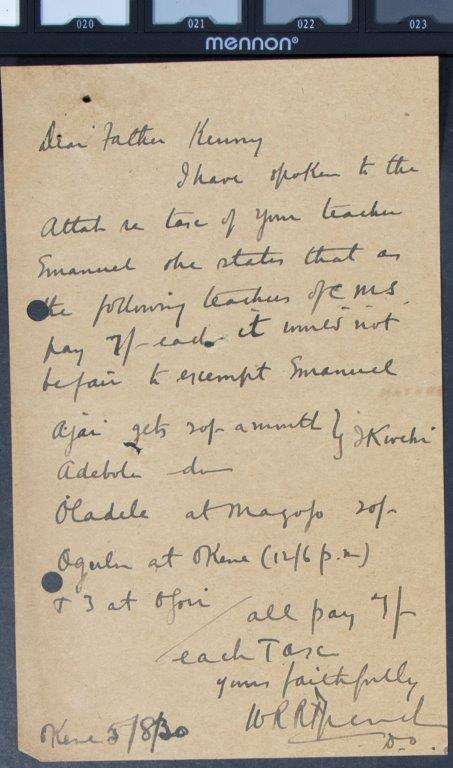 020 021 022 023
mennon®
Dear Father Kenny
I have spoken to the
Attah re tax of your teacher
Emanuel & he states that as
the following teachers of CMS
pay 7/- each it would not
be fair to exempt Emanuel
Ajai gets 20/- a month } 
Adebola do
Oladele at Magofo 20/-
at Okene (12/6 p.m)
& 3 at
all pay 7/-
each Tax
yours faithfully
D.O.
Okene 5/8/30